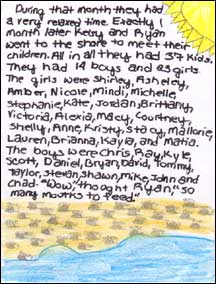 During that month they had
a very relaxed time. Exactly 1
month later Kelsy and Ryan
went to the shore to meet their
children. All in all they had 37 kids.
They had 14 boys and 23 girls.
The girls were Shirley, Ashley,
Amber, Nicole, Mindi, Michelle
Stephanie, Kate, Jordan, Brittany,
Victoria, Alexia, Macy, Courtney,
Shelly, Anne, Kristy, Stacy, Mallorie,
Lauren, Brianna, Kayla, and Matia.
The boys were Chris, Ray, Kyle,
Scott, Daniel, Bryan, David, Tommy,
Taylor, Stevan, Shawn, Mike, John and
Chad. "Wow," thought Ryan, "so
many mouths to feed."